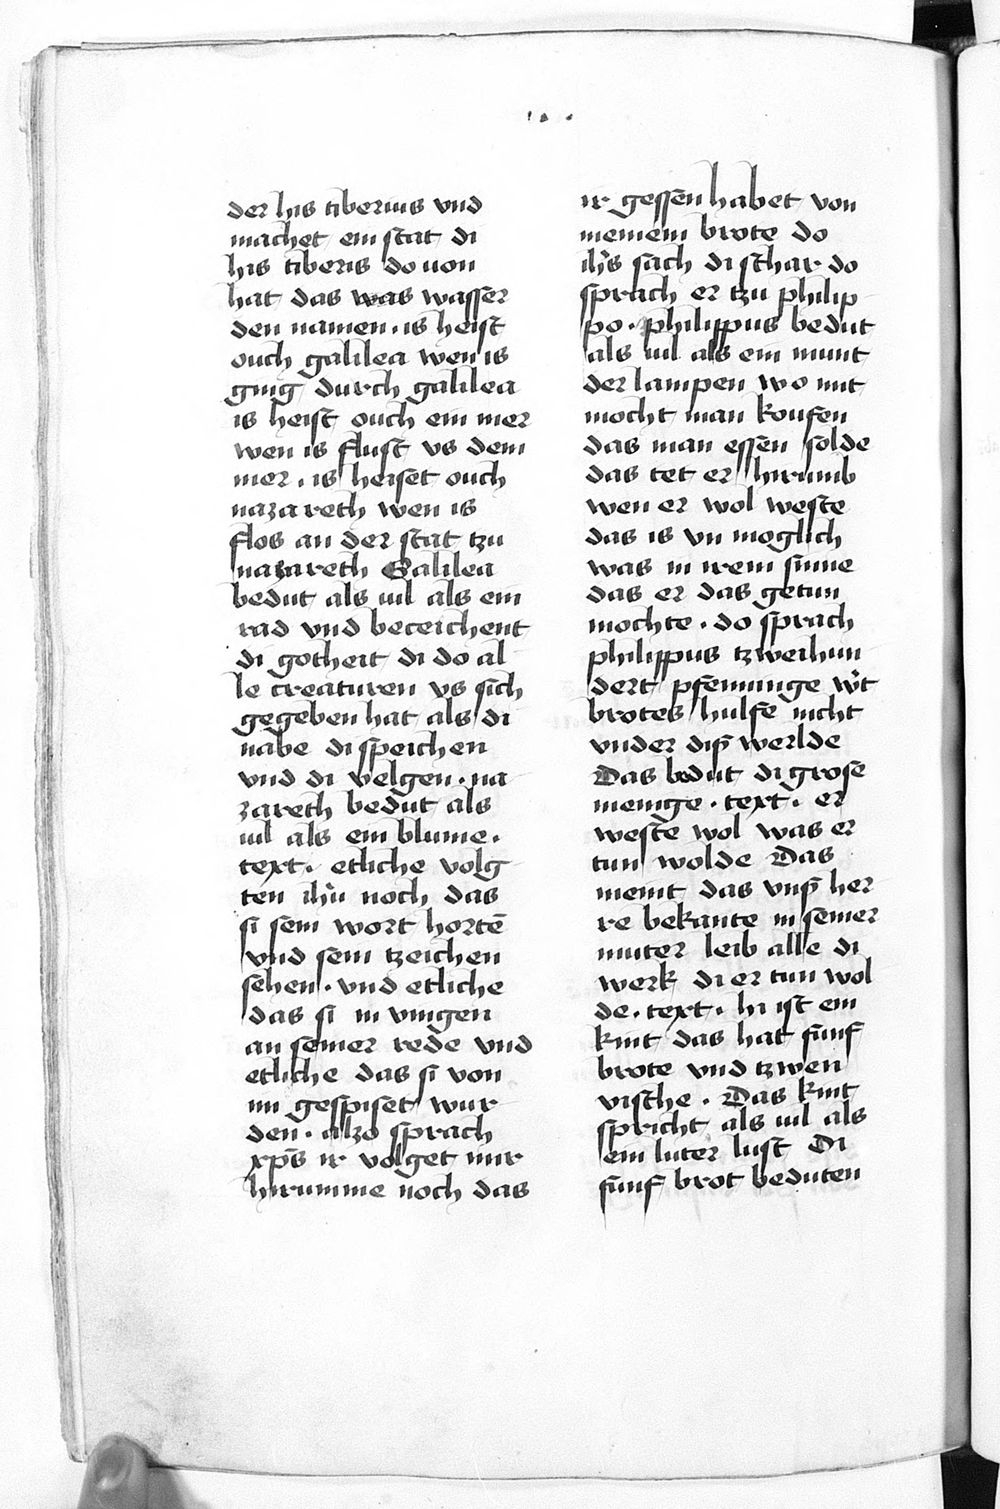 der his tiberius vnd
machet ein stat di
his tiberis do uon
hat das was wasser
den namen . is heist
ouch galilea wen is
ging durch galilea
is heist ouch ein mer
wen is flust vs dem
mer . is heiset ouch
nazareth wen is
flos an der stat tzu
nazareth Galilea
bedut als uil als ein
rad vnd beceichent
di gotheit di do al
le creaturen vs sich
gegeben hat als di
nabe di speichen
vnd di velgen . na
zareth bedut als
uil als ein blume .
text . etliche volg
ten ihũ noch das
si sein wort hortē
vnd sein tzeichen
sehen . vnd etliche
das si in vingen
an seiner rede vnd
etliche das si von
im gespiset wur
den . alzo sprach
xp̄s ir volget mir
hirumme noch das
ir gessen habet von
meinem brote do
ih̄s sach di schar do
sprach er tzu philip
po . philippus bedut
als uil als ein munt
der lampen wo mit
mocht man koufen
das man essen solde
das tet er hirumb
wen er wol weste
das is vn moglich
was in irem sinne
das er das getun
mochte . do sprach
philippus tzweihun
dert pfenninge w't
brotes hulfe nicht
vnder dis' werlde
Das bedut di grose
menige . text . er
weste wol was er
tun wolde Das
meint das vns' her
re bekante in seiner
muter leib alle di
werk di er tun wol
de . text . hi ist ein
kint das hat funf
brote vnd tzwen
vische . Das kint
spricht als uil als
ein luter lust Di
funf brot beduten